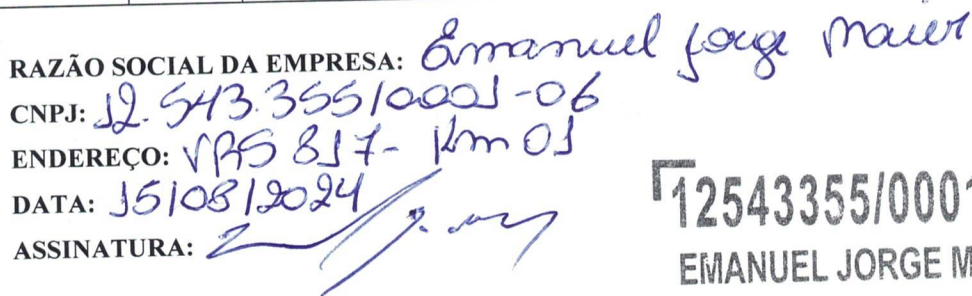 RAZÃO SOCIAL DA EMPRESA: Emanuel Jorge Maier
CNPJ: 12.543.355/0001-06
ENDEREÇO: VRS 817- Km 01
DATA: 15/08/2024
ASSINATURA:
12543355/0001
EMANUEL JORGE M